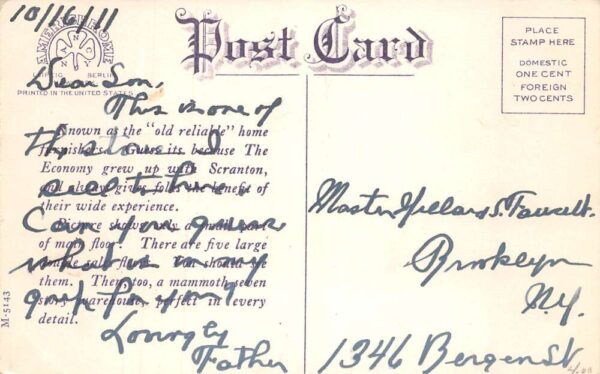 10/16/11
AMERICHROME
LEIPZIG BERLIN
PRINTED IN THE UNITED STATES
Post Card
PLACE
STAMP HERE
DOMESTIC
ONE CENT
FOREIGN
TWO CENTS
Dear Son,
This is one of
the stores I
sell to here
Can you guess
what is in my
for you
Lovingly
Father
Known as the "old reliable" home
furnishers. Guess its because The
Economy grew up with Scranton,
and always gives folks the benefit of
their wide experience.
Picture shows only a small part
of main floor. There are five large
sales floors. You should see
them. Then, too, a mammoth seven
story warehouse, perfect in every
detail.
M-5143
Master Willard S. Fawcett.
Brooklyn
N.Y.
1346 Bergen St